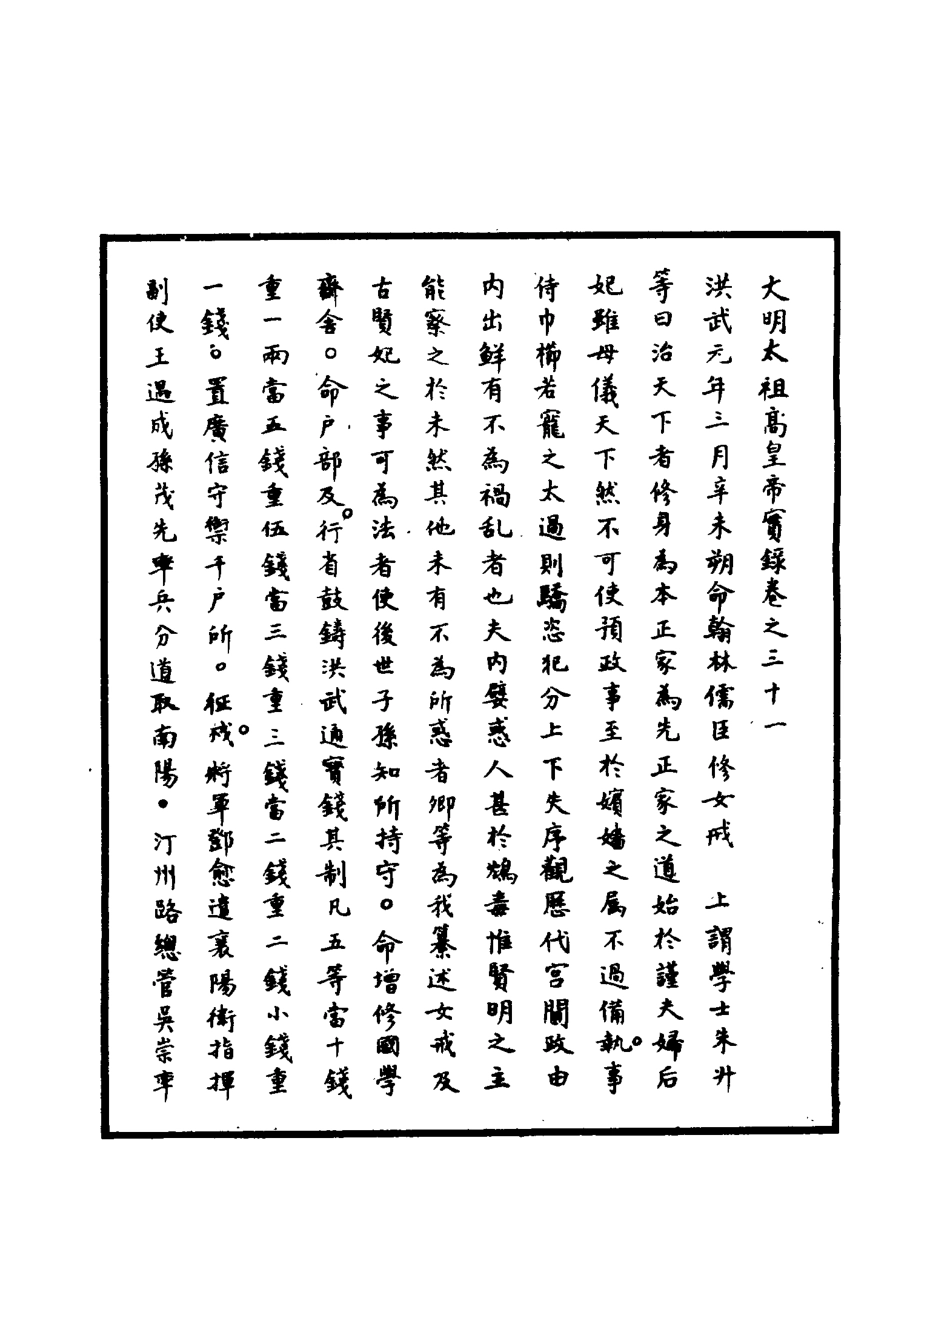 大明太祖高皇帝實錄卷之三十一
洪武元年三月辛未朔命翰林儒臣修女戒　上謂學士朱升
等曰治天下者修身為本正家為先正家之道始於謹夫婦后
妃雖母儀天下然不可使預政事至於嬪嬙之属不過備執事
侍巾櫛若寵之太過則驕恣犯分上下失序觀歷代宮閫政由
内出鮮有不為禍乱者也夫内嬖惑人甚於鴆毒惟賢明之主
能察之於未然其他未有不為所惑者卿等為我纂述女戒及
古賢妃之事可為法者使後世子孫知所持守。命增修國學
齋舍。命户部及行省鼓鑄洪武通寳錢其制凡五等當十錢
重一兩當五錢重伍錢當三錢重三錢當二錢重二錢小錢重
一錢。置廣信守禦千户所。征戍將軍鄧愈遣襄陽衛指揮
副使王遇成孫茂先率兵分道取南陽。汀州路總管吳崇率